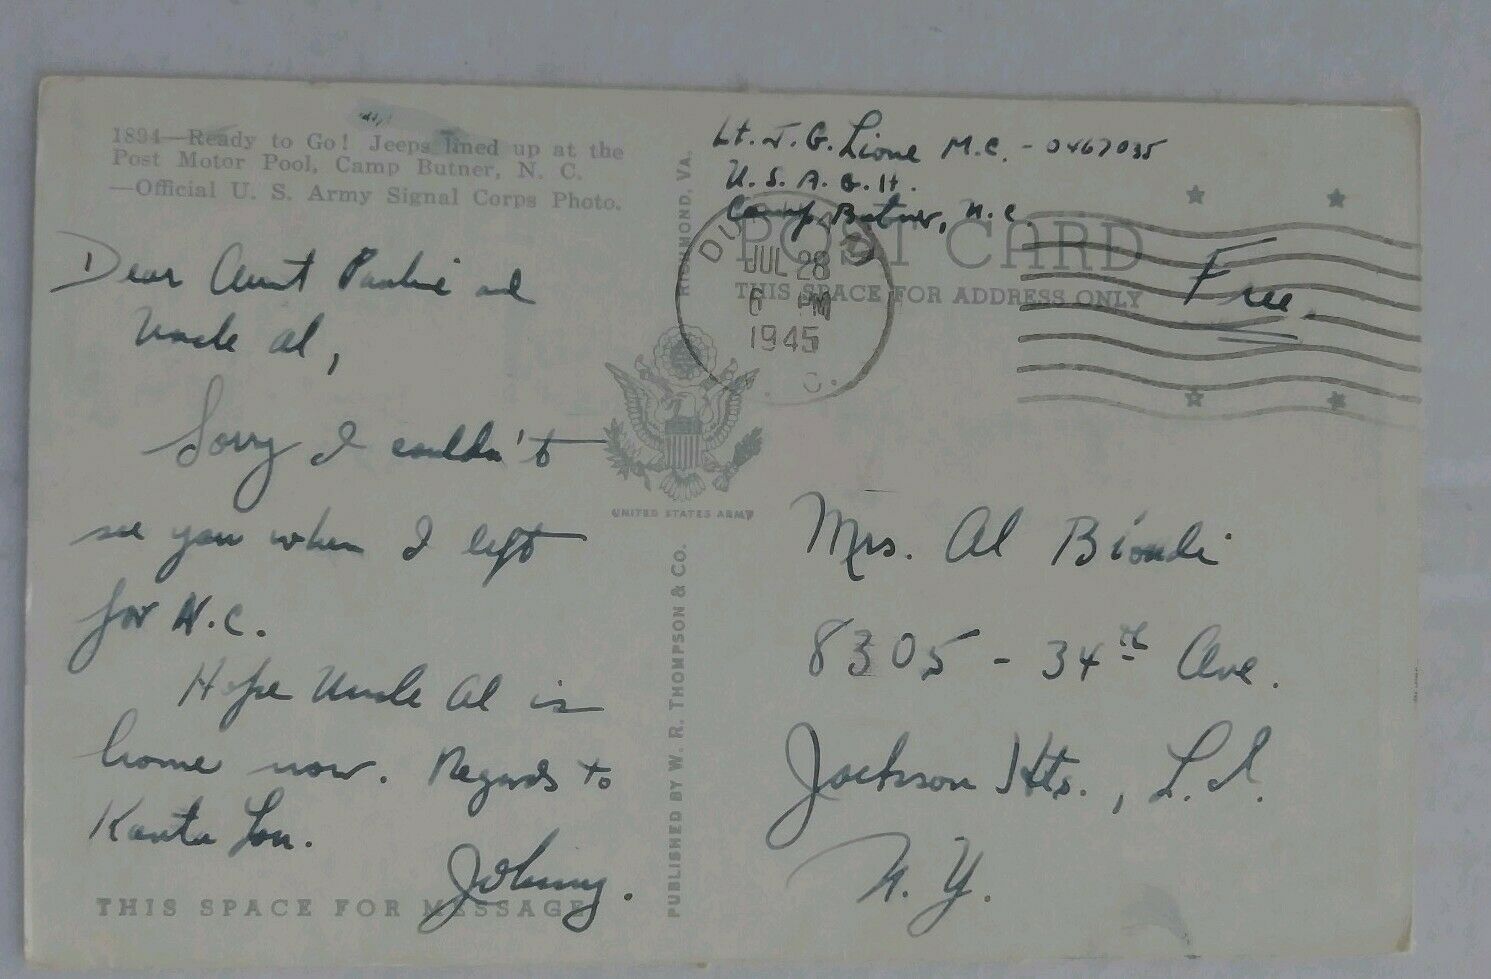 1894—Ready to Go! Jeeps lined up at the
Post Motor Pool, Camp Butner, N. C.
—Official U. S. Army Signal Corps Photo.
Dear Aunt Pauline and
Uncle Al,
Sorry I couldn't
see you when I left
for N.C.
Hope Uncle Al is
home now. Regards to
Lou.
Johnny.
THIS SPACE FOR MESSAGE
RICHMOND, VA.
UNITED STATES ARMY
PUBLISHED BY W. R. THOMPSON & CO.
Lt. J. G. Lione M.C. - 0467035
U. S. A. G. H.
Camp Butner, N.C.
POST CARD
THIS SPACE FOR ADDRESS ONLY
JUL 28
6 PM
1945
Free.
Mrs. Al Biondi
8305 - 34th Ave.
Jackson Hts., L.I.
N.Y.